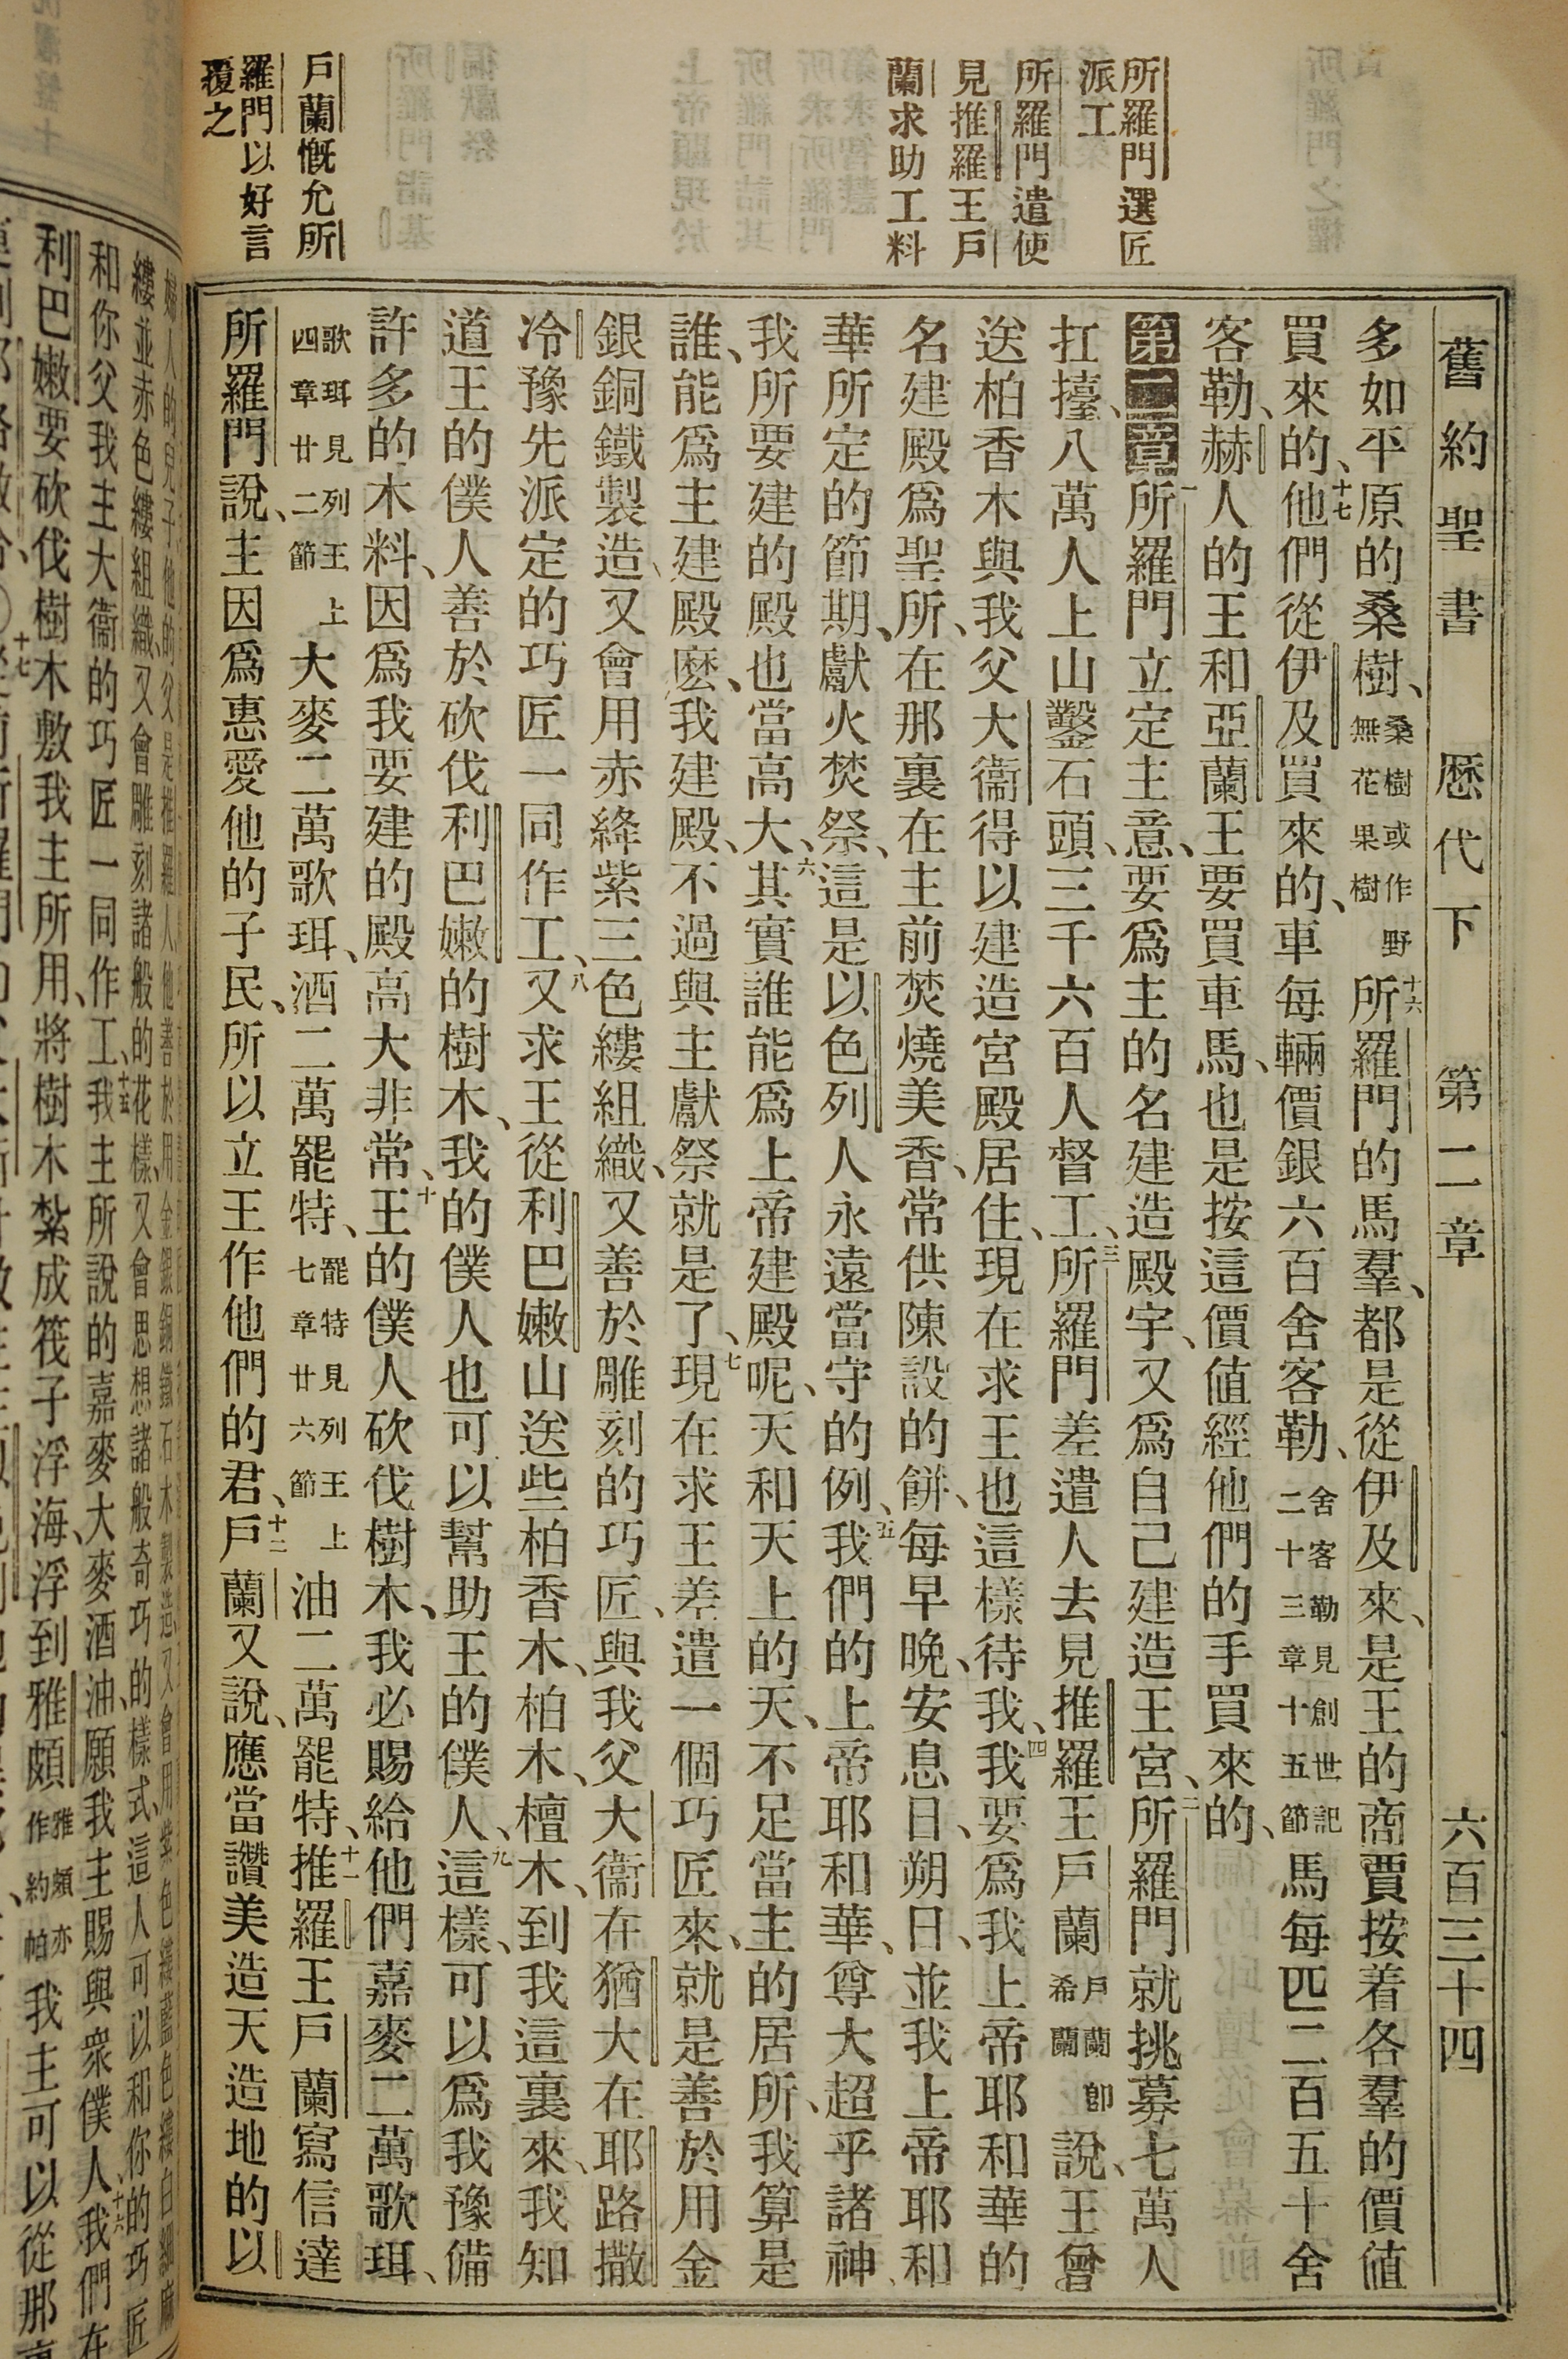 舊約聖書 歷代下 第二章 六百三十四
所羅門選匠
派工
所羅門遣使
見推羅王戶
蘭求助工料
戶蘭慨允所
羅門以好言
覆之
多如平原的桑樹、桑樹或作野無花果樹十六所羅門的馬羣、都是從伊及來、是王的商賈按着各羣的價值
買來的、十七他們從伊及買來的、車每輛價銀六百舍客勒、舍客勒見創世記二十三章十五節馬每匹二百五十舍
客勒、赫人的王和亞蘭王要買車馬、也是按這價值經他們的手買來的、
第二章一所羅門立定主意、要爲主的名建造殿宇、又爲自己建造王宮、二所羅門就挑募七萬人
扛擡、八萬人上山鑿石頭、三千六百人督工、三所羅門差遣人去見推羅王戶蘭戶蘭卽希蘭說、王曾
送柏香木與我父大衞得以建造宮殿居住、現在求王也這樣待我、四我要爲我上帝耶和華的
名建殿爲聖所、在那裏在主前焚燒美香、常供陳設的餅、每早晚、安息日、朔日、並我上帝耶和
華所定的節期、獻火焚祭、這是以色列人永遠當守的例、五我們的上帝耶和華、尊大超乎諸神、
我所要建的殿也當高大、六其實誰能爲上帝建殿呢、天和天上的天、不足當主的居所、我算是
誰、能爲主建殿麽、我建殿、不過與主獻祭就是了、七現在求王差遣一個巧匠來、就是善於用金
銀銅鐵製造、又會用赤絳紫三色縷組織、又善於雕刻的巧匠、與我父大衞在猶大在耶路撒
冷豫先派定的巧匠一同作工、八又求王從利巴嫩山送些柏香木、柏木、檀木、到我這裏來、我知
道王的僕人善於砍伐利巴嫩的樹木、我的僕人也可以幫助王的僕人、九這樣、可以爲我豫備
許多的木料、因爲我要建的殿高大非常、十王的僕人砍伐樹木、我必賜給他們嘉麥二萬歌珥、
歌珥見列王上四章廿二節大麥二萬歌珥、酒二萬罷特、罷特見列王上七章廿六節油二萬罷特、十一推羅王戶蘭寫信達
所羅門說、主因爲惠愛他的子民、所以立王作他們的君、十二戶蘭又說、應當讚美造天造地的以
婦人的兒子他的父是推羅人他善於用金銀銅鐵石木製造又會用紫色縷藍色縷白細麻
縷並赤色縷組織、又會雕刻諸般的花樣、又會思想諸般奇巧的樣式、這人可以和你的巧匠
和你父我主大衞的巧匠一同作工、十五我主所說的嘉麥大麥酒油、願我主賜與衆僕人、十六我們在
利巴嫩要砍伐樹木敷我主所用、將樹木紮成筏子浮海、浮到雅頗雅頗亦作約帕我主可以從那